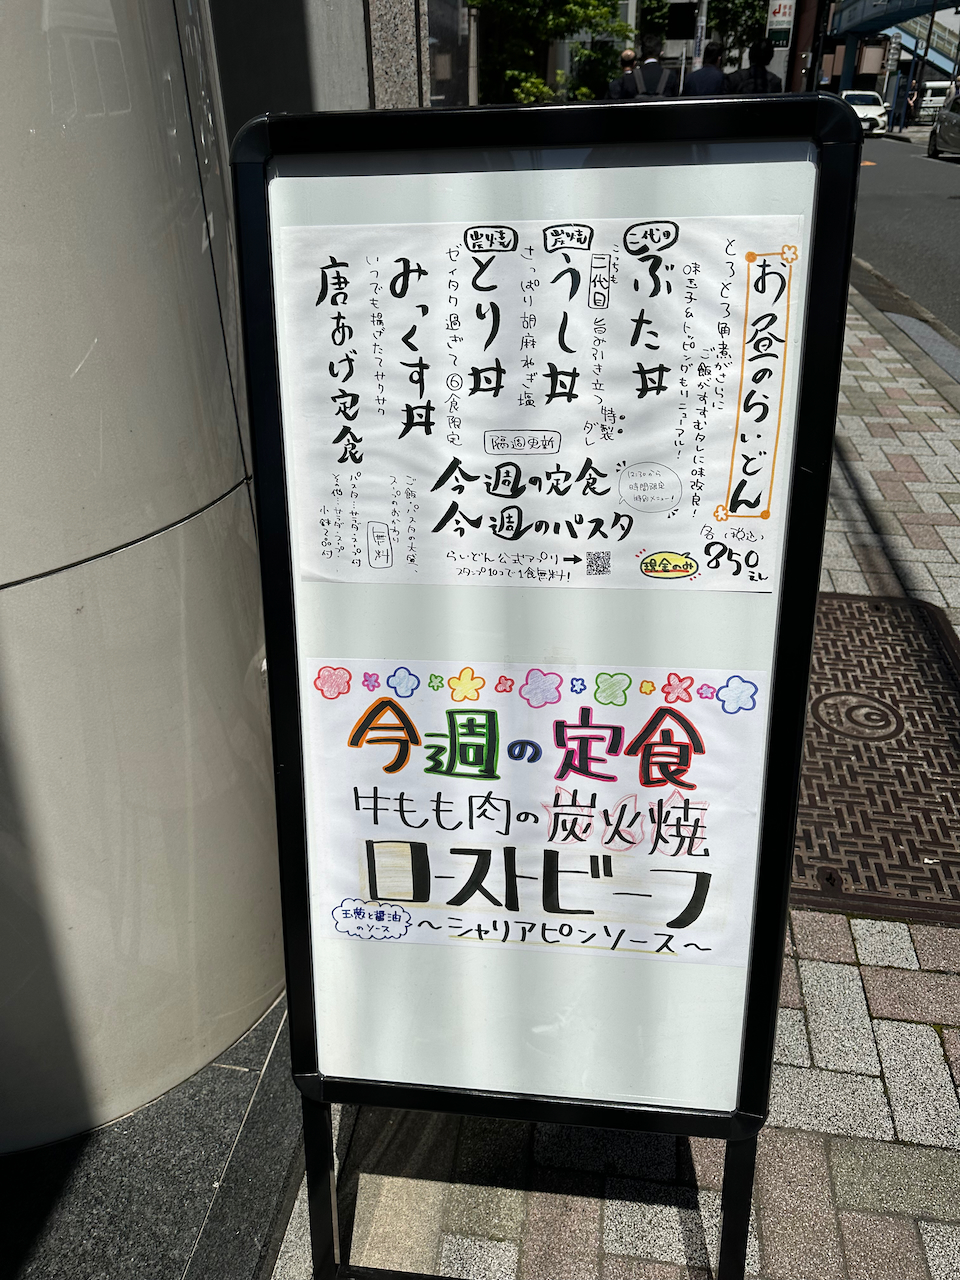 お昼のらいどん
とろとろ角煮がさらに
ご飯がすすむタレに味改良！
味玉子&トッピングもリニューアル！
二代目
ぶた丼
こっちも
二代目
旨み引き立つ
特製ダレ
炭焼
うし丼
さっぱり胡麻ねぎ塩
炭焼
とり丼
ゼイタク過ぎて⑥食限定
みっくす丼
いつでも揚げたてサクサク
唐あげ定食
隔週更新
今週の定食
今週のパスタ
12:30から
時間限定
特別メニュー！
らいどん公式アプリ→
スタンプ10コで1食無料！
現金のみ
各(税込)
850えん
ご飯・パスタの大盛、
スープのおかわり
無料
パスタ…サラダ・スープ付
その他…サラダ・スープ・
小鉢2品付
今週の定食
牛もも肉の炭火焼
ローストビーフ
玉葱と醤油
のソース
〜シャリアピンソース〜